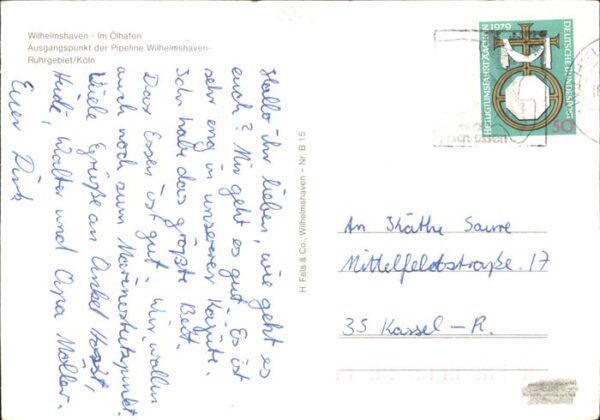 Wilhelmshaven - Im Ölhafen
Ausgangspunkt der Pipeline Wilhelmshaven-
Ruhrgebiet/Köln
Hallo ihr lieben, wie geht es
euch? Mir geht es gut. Es ist
sehr eng in unserer Kajüte.
Ich habe das größte Bett.
Das Essen ist gut. Wir wollen
auch noch zum Marinestützpunkt.
Viele Grüße an Onkel Horst,
Heidi, Walter und Opa Möller.
Euer Dirk
H. Fels & Co., Wilhelmshaven - Nr. B 15
HEILIGTUMSFAHRT AACHEN 1979
DEUTSCHE BUNDESPOST
50
An Käthe Saure
Mittelfeldstraße. 17
35 Kassel-R.